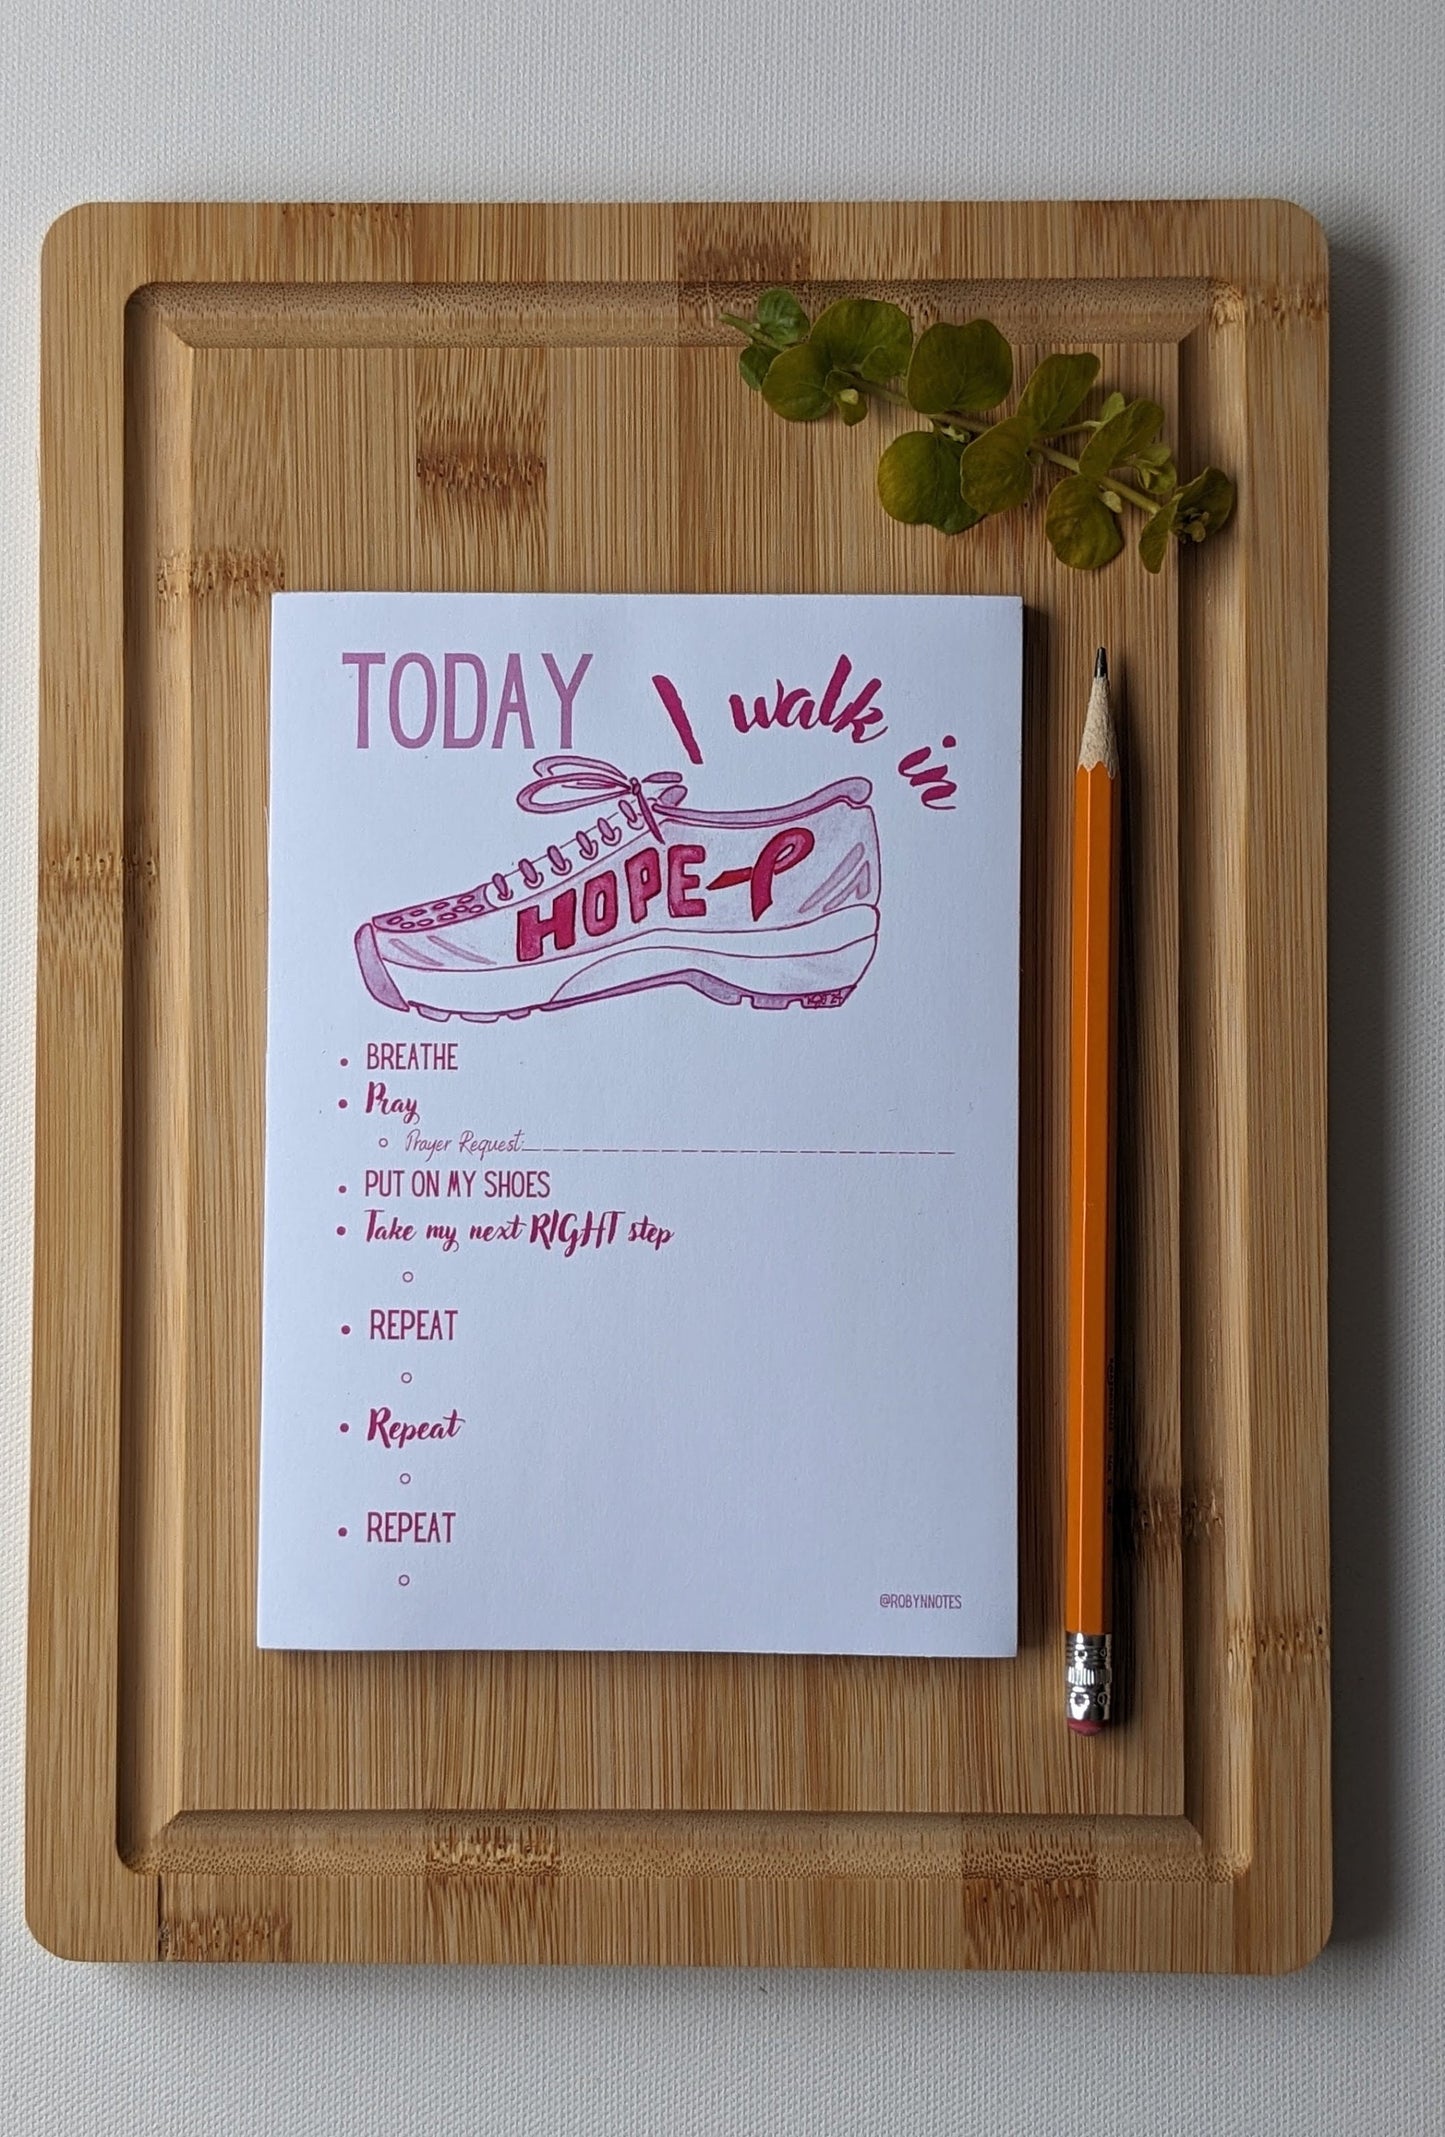 TODAY I walk in
HOPE
• BREATHE
• Pray
○ Prayer Request:_________________________
• PUT ON MY SHOES
• Take my next RIGHT step
○
• REPEAT
○
• Repeat
○
• REPEAT
○
@ROBYNNOTES